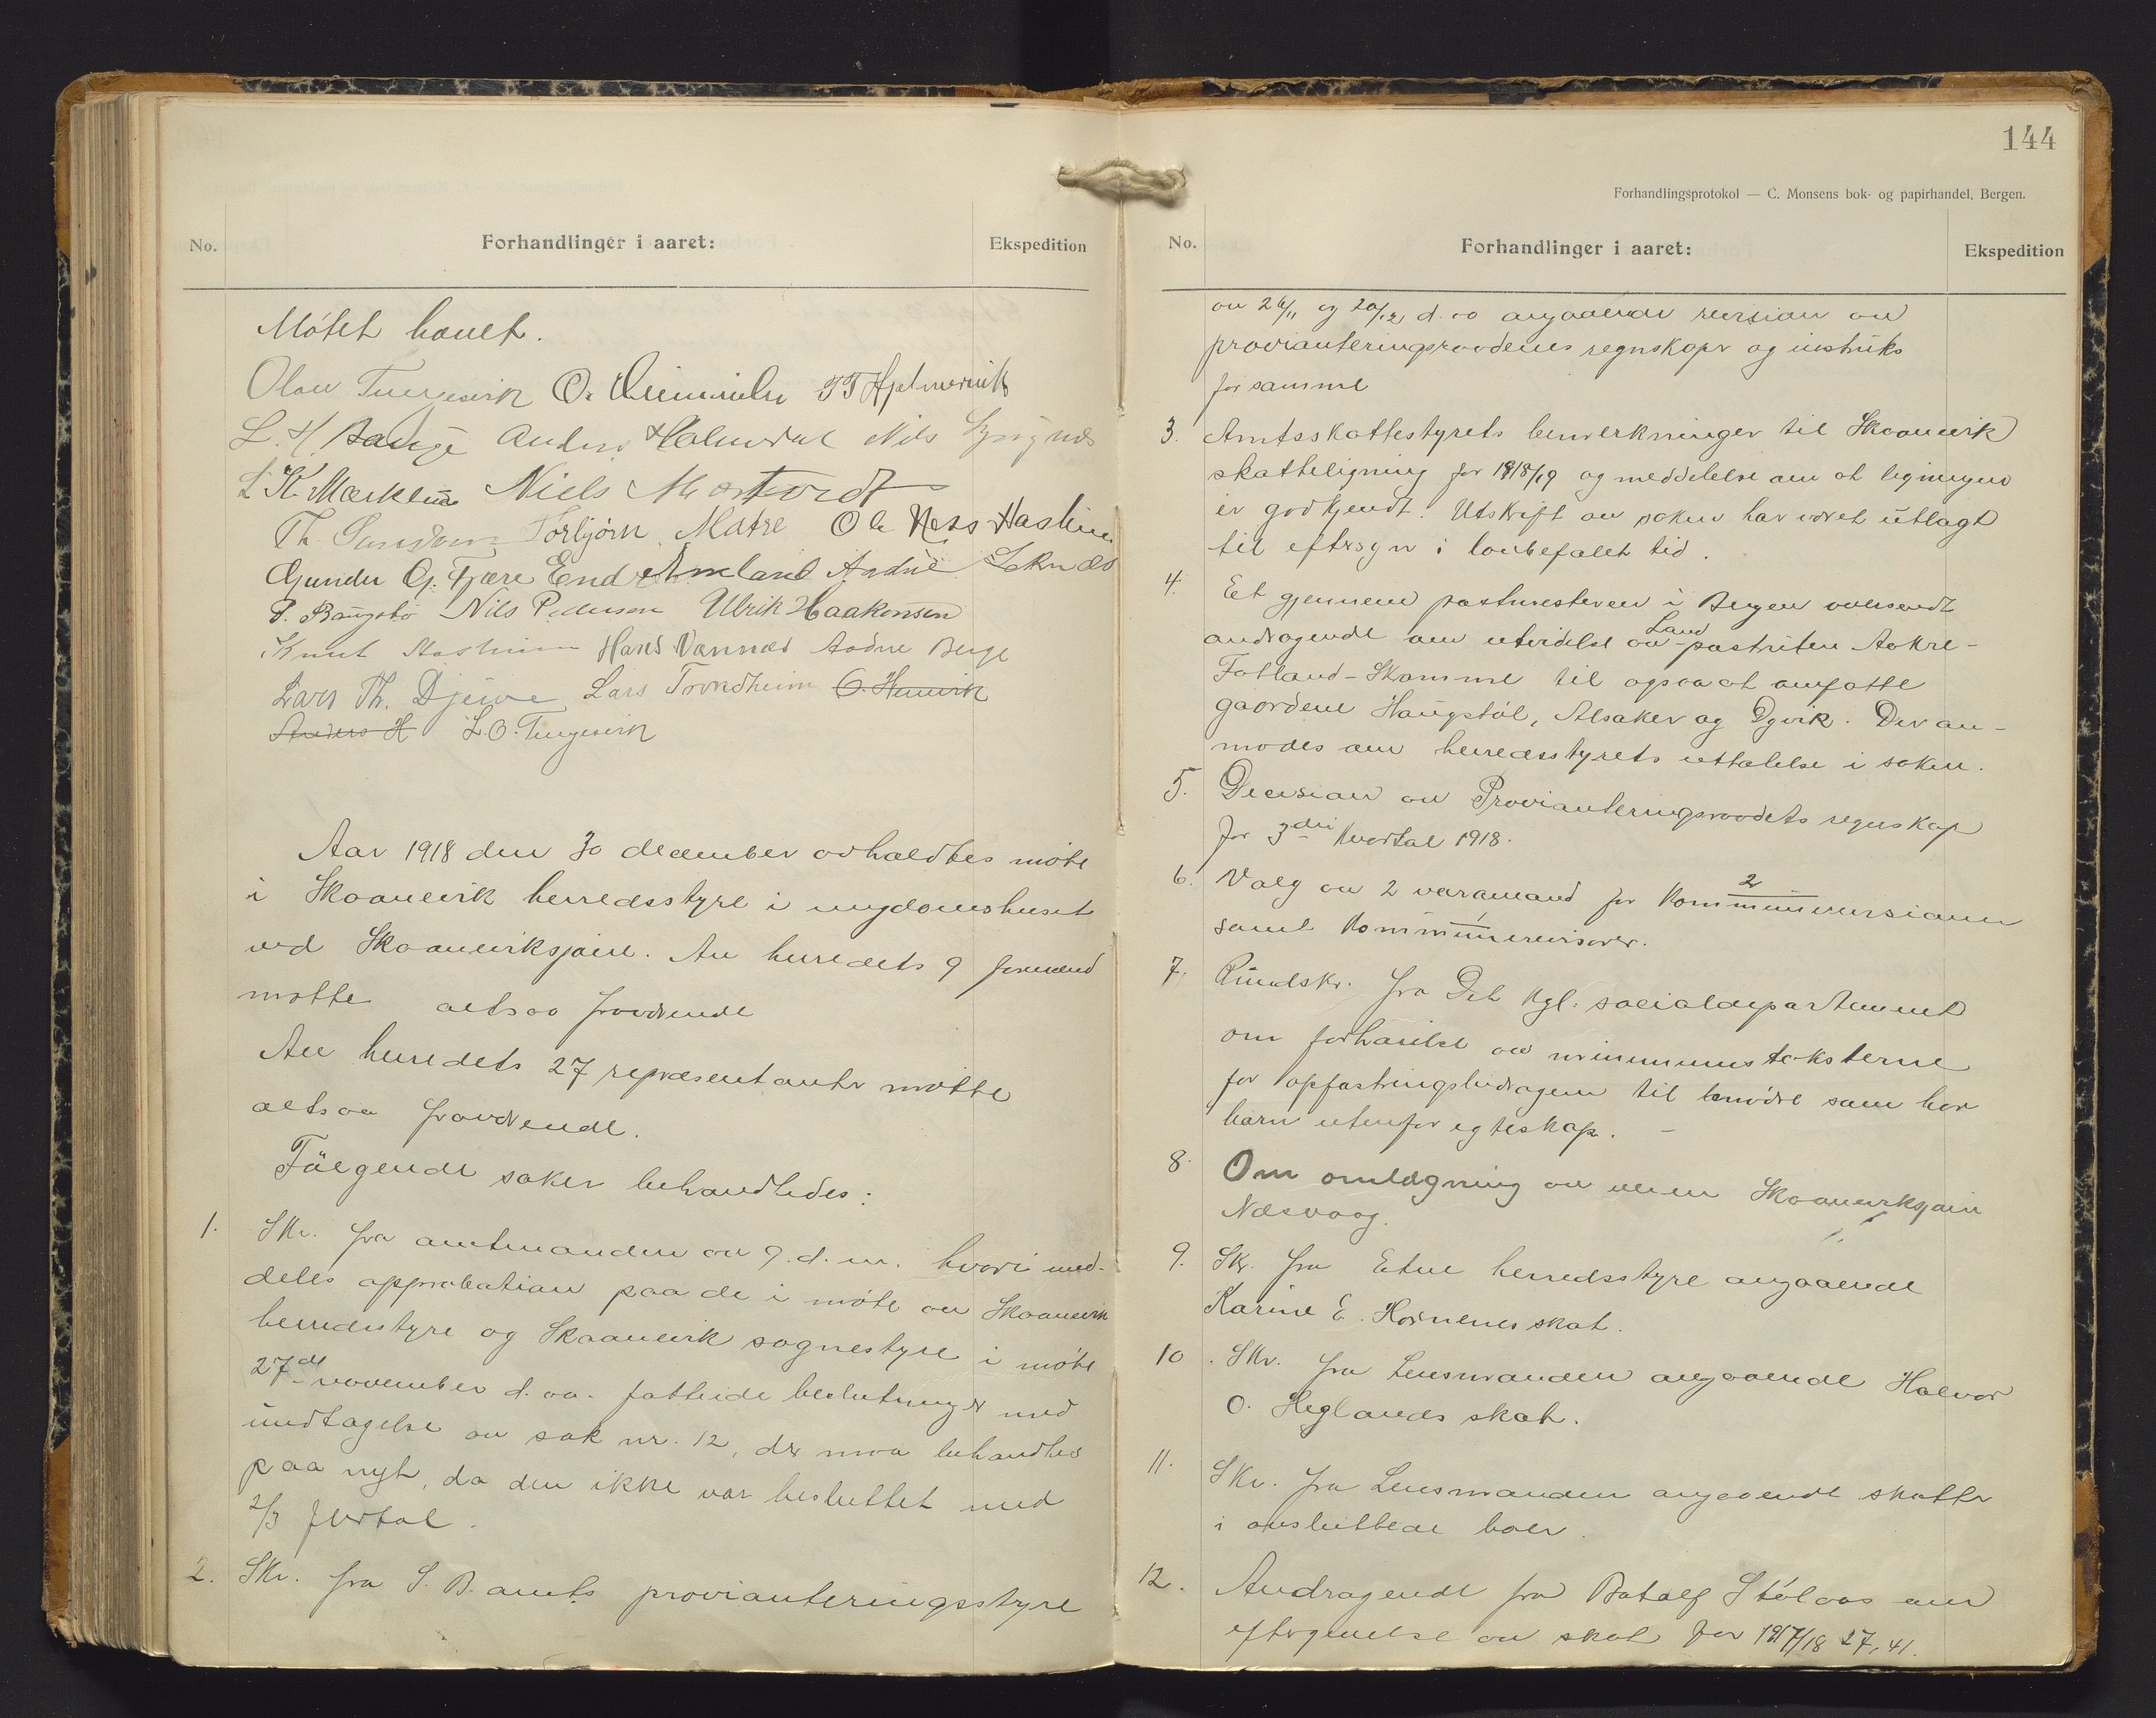 No.
Forhandlinger i aaret:
Ekspedition
Møtet hævet.
Olav Tungesvik O. TT Hjelmervik
L. H. Bauge Anders Holmedal Nils
L K. Mærkland Niels
Th. Torbjørn Matre Ole Næss
Gunder G. Fjære End Ameland Andre
P. Baugstø Nils Pedersen Ulrik Haakonsen
Knut Hans Vannes Aadne Berge
Lars Th. Djuve Lars Trondheim O.
Anders H L. O. Tungesvik
Aar 1918 den 30 december avholdtes møte
i Skaanevik herredsstyre i ungdomshuset
ved Skaaneviksjøen. Av herredets 9 formænd
møtte altsaa fraværende
Av herredets 27 repræsentanter møtte
altsaa fraværende.
Følgende saker behandledes:
1. Skr. fra amtmanden av 9. d. m. hvori med-
deles approbation paa de i møte av Skaanevik
herredsstyre og Skaanevik sognestyre i møte
27de november d. aa. fattede beslutninger med
undtagelse av sak nr. 12, der maa behandles
paa nyt, da den ikke var besluttet med
2/3 flertal.
2. Skr. fra S. B. amts provianteringsstyre
144
Forhandlingsprotokol — C. Monsens bok- og papirhandel, Bergen.
No.
Forhandlinger i aaret:
Ekspedition
av 26/11 og 20/12 d. aa angaaende revision av
provianteringsraadenes regnskaper og instruks
for samme
3. Amtsskattestyrets bemerkninger til Skaanevik
skatteligning for 1918/19 og meddelelse om at ligningen
er godkjendt. Utskrift av saken har været utlagt
til eftersyn i lovbefalet tid.
4. Et gjennem postmesteren i Bergen oversendt
andragende om utvidelse av Land-postruten Aakre-
Fatland-Skamme til ogsaa at omfatte
gaardene Haugstøl, Alsaker og Dyvik. Der an-
modes om herredsstyrets uttalelse i saken.
5. Decision av Provianteringsraadets regnskap
for 3die kvartal 1918.
6. Valg av 2 varamænd for kommunerevisionen 2
samt kommunerevisorer.
7. Rundskr. fra Det kgl. socialdepartement
om forhøielse av minimumstaksterne
for opfostringsbidragene til mødre som har
barn utenfor egteskap. -
8. Om omlægning av veien Skaaneviksjøen
Næsvaag.
9. Skr. fra Etne herredsstyre angaaende
Karine E. Høinenes skat.
10. Skr. fra Lensmanden angaaende Halvor
O. Høglands skat.
11. Skr. fra Lensmanden angaaende skatter
i avsluttede boer.
12. Andragende fra Botolf Støläas om
eftergivelse av skat for 1917/18 27,41.